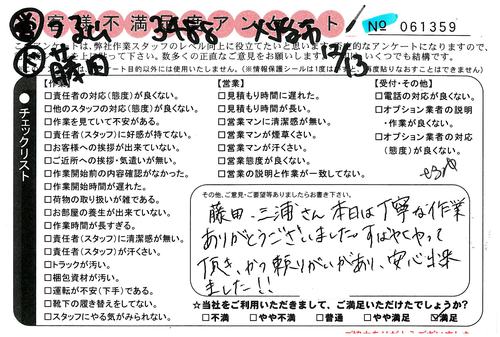 お客様不満足度アンケート
No 061359
3488
藤田
12/13
このアンケートは、弊社作業スタッフのレベル向上に役立てたいと思います。
ますので、数多くの正直なご意見をお願いいたします。
ート目的以外には使用いたしません。(※情報保護シールは1度は
再度貼りなおすことはできません)
チェックリスト
【作
□責任者の対応(態度)が良くない。
□他のスタッフの対応(態度)が良くない。
□作業を見ていて不安がある。
□責任者(スタッフ)に好感が持てない。
□お客様への挨拶が出来ていない。
□ご近所への挨拶・気遣いが無い。
□作業開始前の内容確認がなかった。
□作業開始時間が遅れた。
□荷物の取り扱いが雑である。
□お部屋の養生が出来ていない。
□作業時間が長すぎる。
□責任者(スタッフ)に清潔感が無い。
□責任者(スタッフ)が汗くさい。
□トラックが汚い。
□梱包資材が汚い。
□運転が不安(下手)である。
□靴下の履き替えをしてない。
□スタッフにやる気がみられない。
【営業】
□見積もり時間に遅れた。
□見積もり時間が長い。
□営業マンに清潔感が無い。
□営業マンが煙草くさい。
□営業マンが汗くさい。
□営業態度が良くない。
□営業の説明と作業が一致してない。
【受付・その他】
□電話の対応が良くない。
□オプション業者の説明
・作業が良くない。
□オプション業者の対応
(態度)が良くない。
その他、ご意見・ご要望等ありましたらお書き下さい。
藤田・三浦さん 本日は丁寧な作業
ありがとうございました。すばやくやって
頂き、かつ頼りがいがあり、安心出来
ました!!
☆当社をご利用いただきまして、ご満足いただけたでしょうか?
□不満 □やや不満 □普通 □やや満足 ☑満足